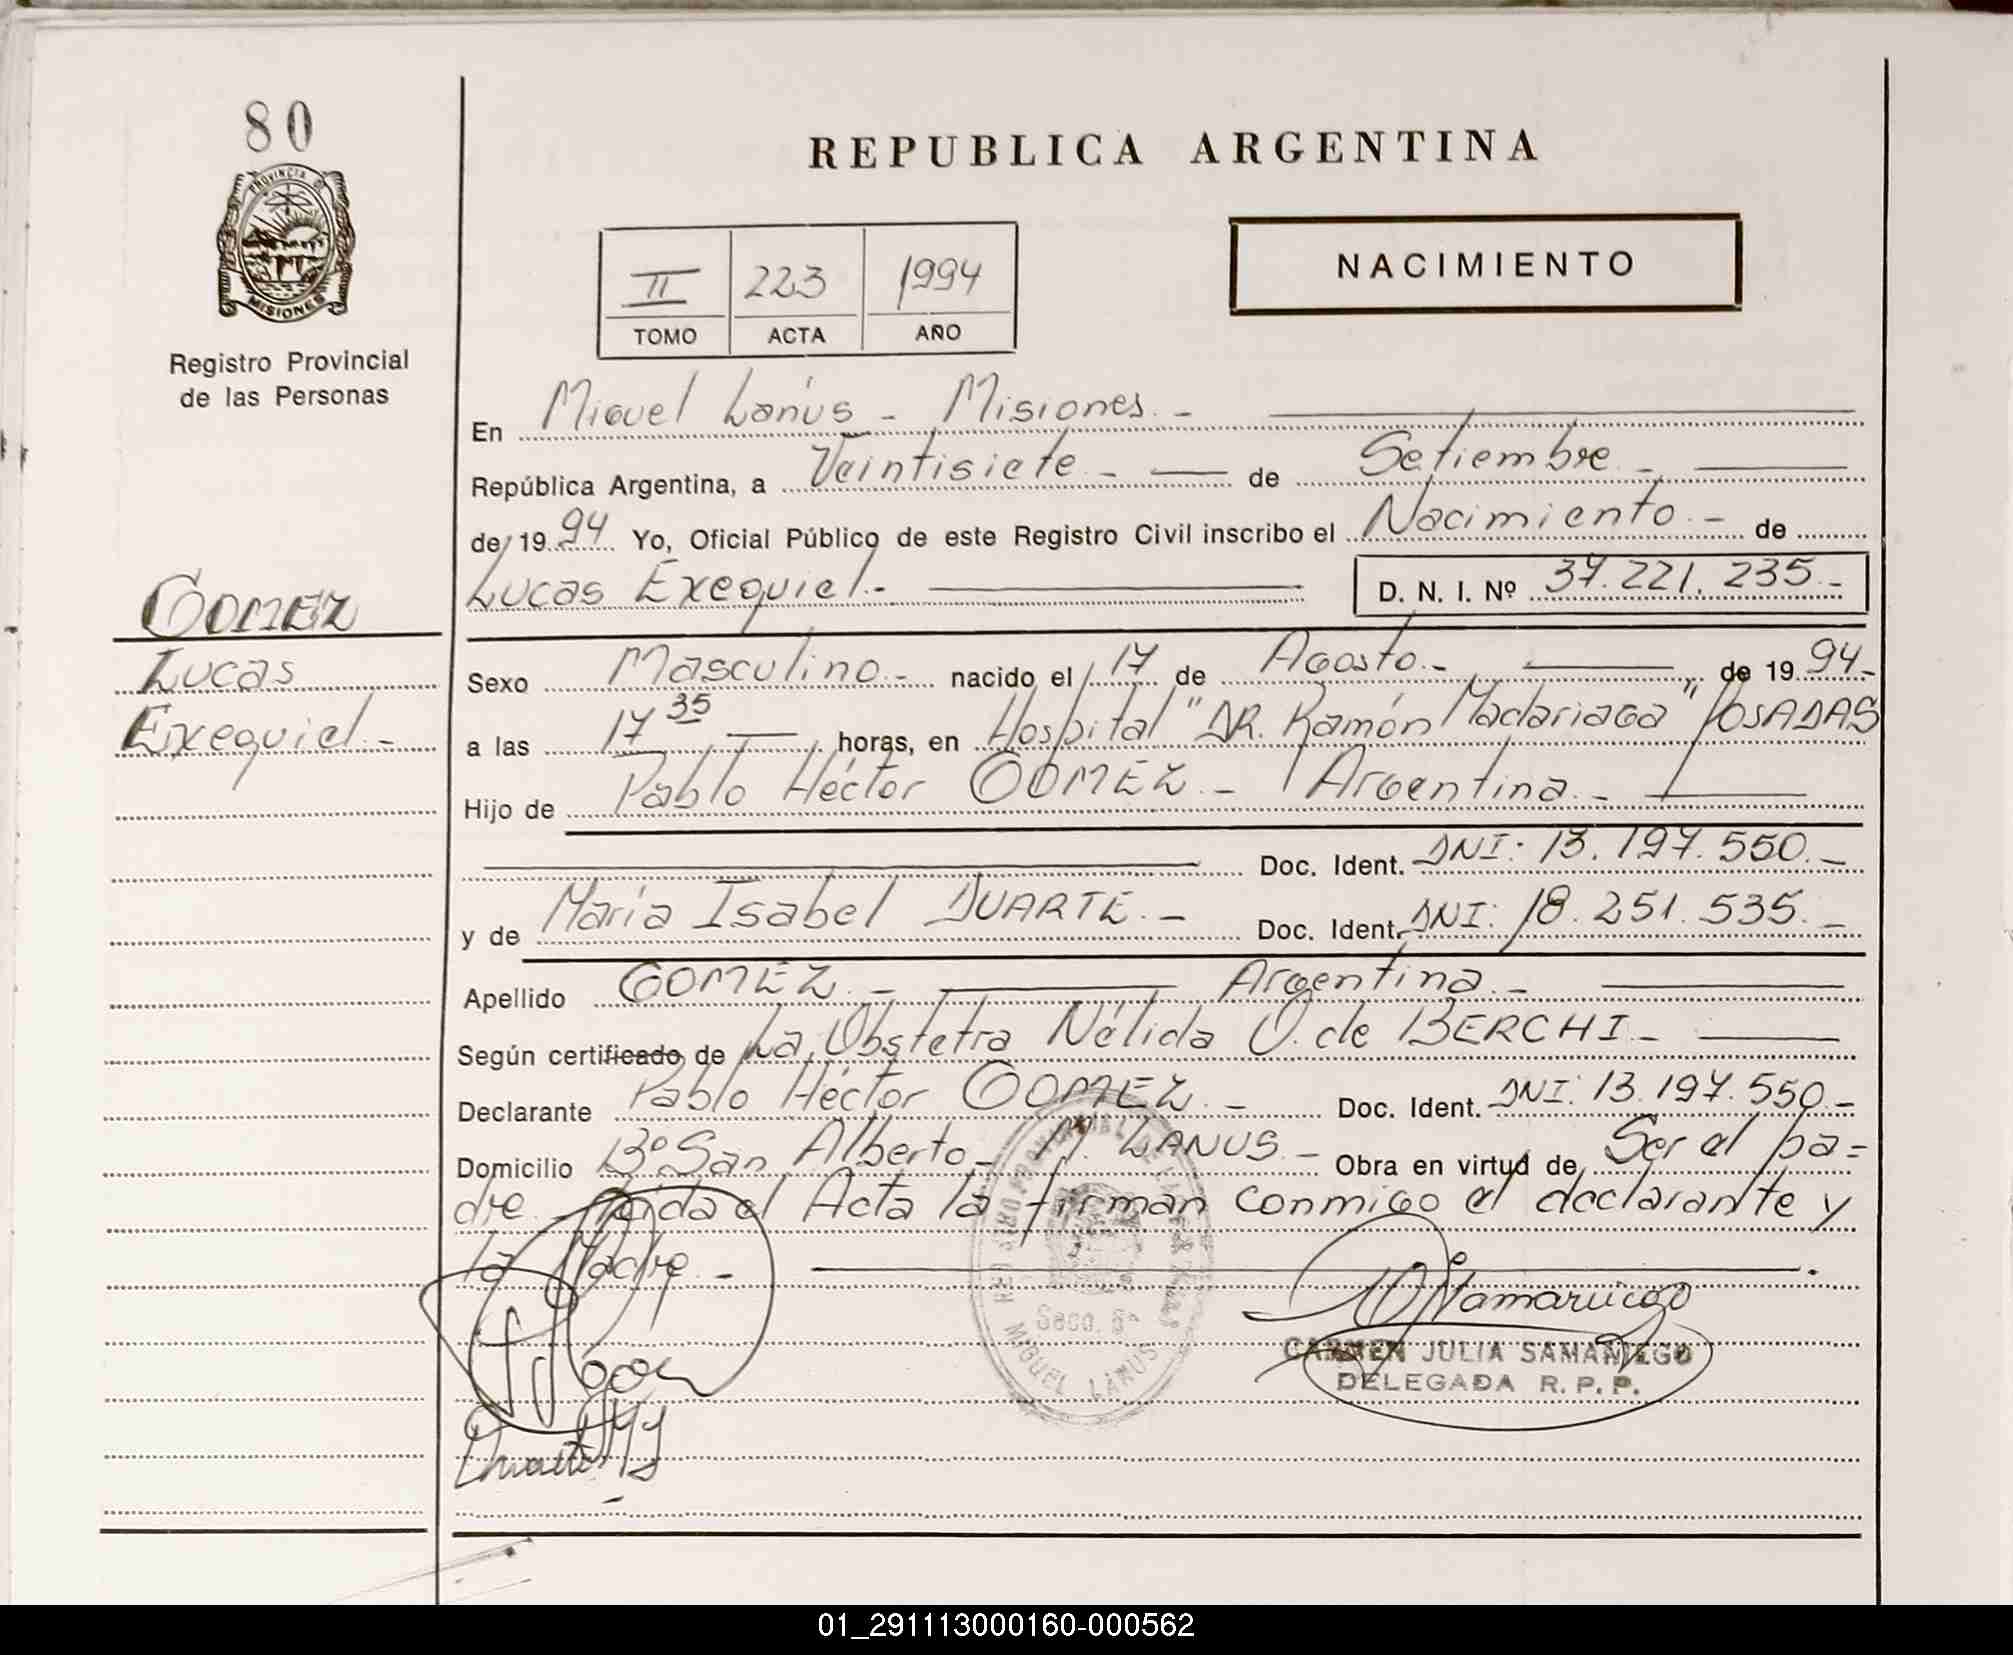 80
PROVINCIA DE
MISIONES
Registro Provincial
de las Personas
GOMEZ
Lucas
Exequiel.-
REPUBLICA ARGENTINA
II 223 1994
TOMO ACTA AÑO
NACIMIENTO
En Miguel Lanús - Misiones.-
República Argentina, a Veintisiete.- de Setiembre.-
de 1994 Yo, Oficial Público de este Registro Civil inscribo el Nacimiento.- de
Lucas Exequiel.- D. N. I. Nº 37.221.235.-
Sexo Masculino.- nacido el 17 de Agosto.- de 1994.-
a las 17 35 horas, en Hospital "DR. Ramón Madariaga" POSADAS
Hijo de Pablo Héctor GOMEZ.- Argentina.-
Doc. Ident. DNI: 13.197.550.-
y de María Isabel DUARTE.- Doc. Ident. DNI: 18.251.535.-
Apellido GOMEZ.- Argentina.-
Según certificado de La Obstetra Nélida O. de BERCHI.-
Declarante Pablo Héctor GOMEZ.- Doc. Ident. DNI: 13.197.550.-
Domicilio Bº San Alberto.- M. LANUS.- Obra en virtud de Ser el pa=
dre.- Leída el Acta la firman conmigo el declarante y
la Madre.-
MIGUEL LANUS
CARMEN JULIA SAMANIEGO
DELEGADA R.P.P.
Duarte M I
01_291113000160-000562